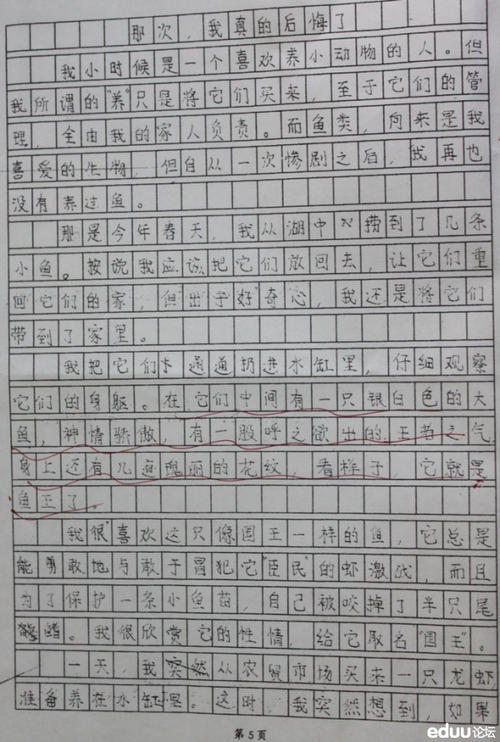 那次，我真的后悔了
我小时候是一个喜欢养小动物的人。但
我所谓的"养"只是将它们买来，至于它们的管
理，全由我的家人负责。而鱼类，向来是我
喜爱的生物，但自从一次惨剧之后，我再也
没有养过鱼。
那是今年春天，我从湖中捞到了几条
小鱼。按说我应该把它们放回去，让它们重
回它们的家，但出于好奇心，我还是将它们
带到了家里。
我把它们通通扔进水缸里，仔细观察
它们的身躯。在它们中间有一只银白色的大
鱼，神情骄傲，有一股呼之欲出的王者之气
身上还有几道瑰丽的花纹，看样子，它就是
鱼王了。
我很喜欢这只像国王一样的鱼，它总是
能勇敢地与敢于冒犯它"臣民"的虾激战，而且
为了保护一条小鱼苗，自己被啖掉了半只尾
鳍。我很欣赏它的性情，给它取名"国王"。
一天，我突然从农贸市场买来一只龙虾
准备养在水缸里。这时，我突然想到，如果
第5页
eduu论坛